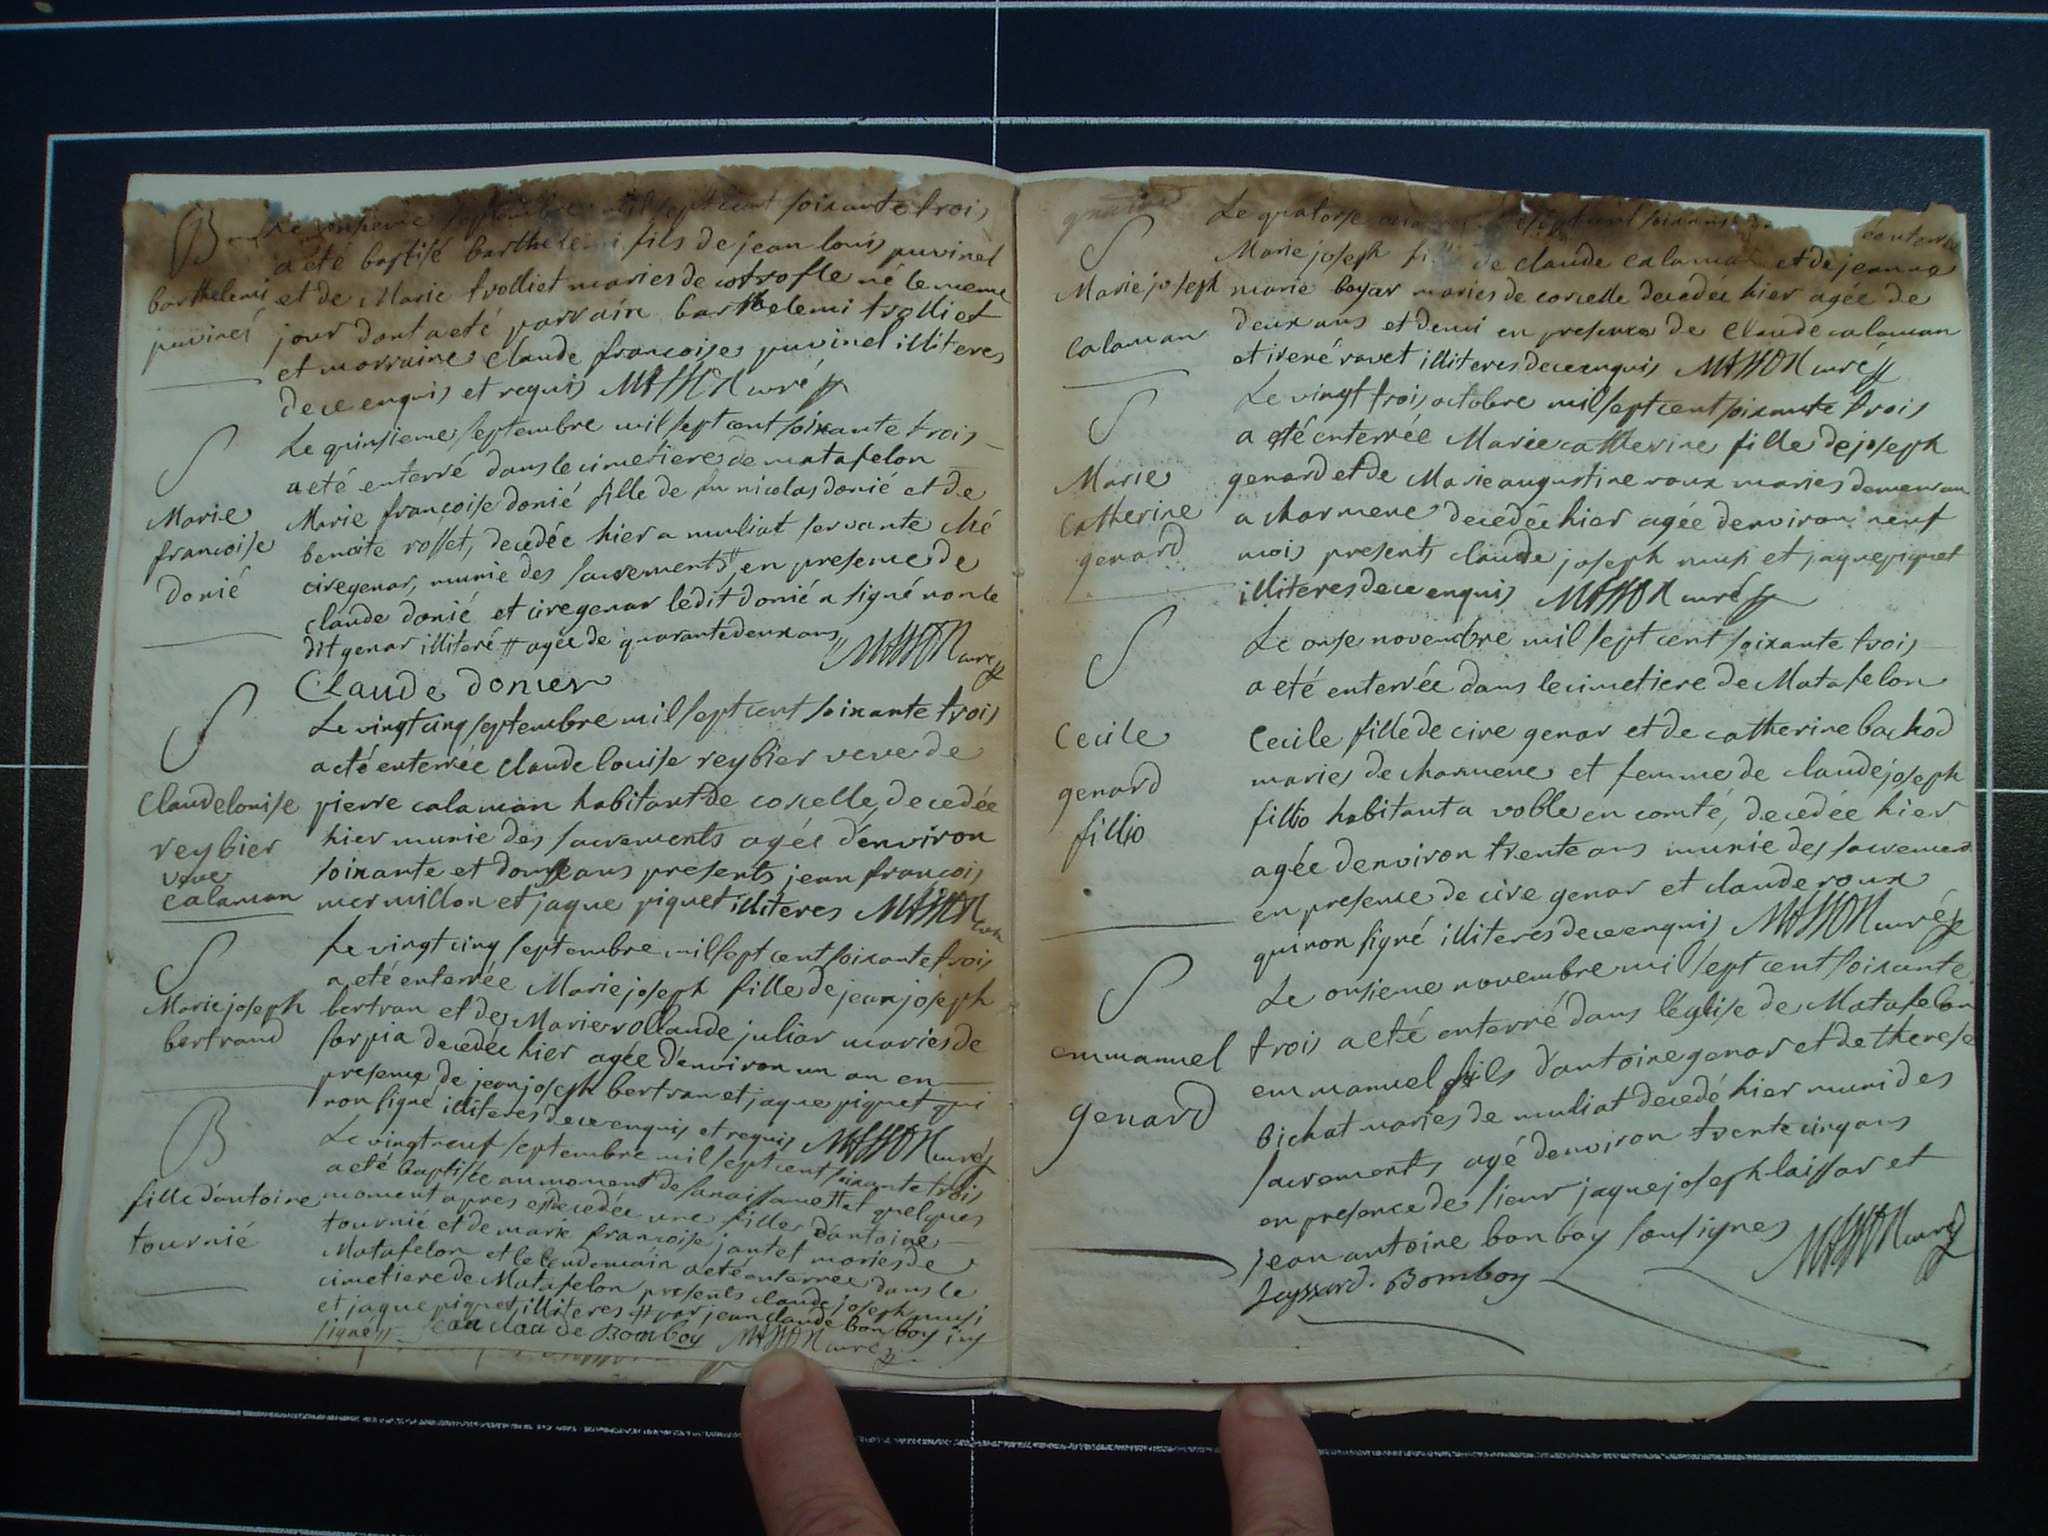 B Le onsieme septembre mil sept cent soixante trois
a eté baptisé barthelemi fils de jean louis puvinel
barthelemi et de Marie trolliet maries de né le meme
puvinel jour dont a eté parrain barthelemi trolliet
et marraine Claude françoise puvinel illiteres
de ce enquis et requis MASSON curé
S Le quinsieme septembre mil sept cent soixante trois
a eté enterré dans le cimetiere de matafelon
Marie Marie françoise donié fille de feu nicolas donié et de
francoise benoite rosset, decedée hier a muliat servante ché
donié cire genar, munie des sacrements # en presence de
claude donié et cire genar ledit donié a signé non le
dit genar illiteré # agée de quarante deux ans MASSON curé
Claude donier
S Le vingt cinq septembre mil sept cent soixante trois
a eté enterrée claude louise reybier veve de
Claude louise pierre calaman habitant de corcelle, decedée
reybier hier munie des sacrements agée d'environ
veve soixante et douse ans presents jean francois
calaman mermillon et jaque piquet illiteres MASSON curé
S Le vingt cinq septembre mil sept cent soixante trois
a eté enterrée Marie joseph fille de jean joseph
Marie joseph bertran et de Marie rollande juliar maries de
bertrand sorpia decedée hier agée d'environ un an en
presence de jean joseph bertran et jaque piquet qui
non signé illiteres de ce enquis et requis MASSON curé
B Le vingt neuf septembre mil sept cent soixante trois
a eté baptisée au moment de sa naissance # et quelques
fille d'antoine moment apres est decedée une fille d'antoine
tournié tournié et de marie françoise jantet maries de
Matafelon et le lendemain a eté enterrée dans le
cimetiere de Matafelon presents claude joseph musi
et jaque piquet illiteres # par jean claude bonboy sus
signé # jean claude Bomboy MASSON curé
S Le quatorse mil sept cent soixante enterré
Marie joseph fille de claude calaman et de jeanne
Marie joseph marie boyar maries de corcelle decedée hier agée de
calaman deux ans et demi en presence de Claude calaman
et irené ravet illiteres de ce enquis MASSON curé
S Le vingt trois octobre mil sept cent soixante trois
a eté enterrée Marie catherine fille de joseph
Marie genard et de Marie augustine roux maries demeuran
catherine a charmene decedée hier agée denviron neuf
genard mois presents claude joseph musi et jaque piquet
illiteres de ce enquis MASSON curé
S Le onse novembre mil sept cent soixante trois
a eté enterrée dans le cimetiere de Matafelon
Cecile Cecile fille de cire genar et de catherine bachod
genard maries de charmene et femme de claude joseph
fillio fillio habitant a voble en comté, decedée hier
agée denviron trente ans munie des sacrement
en presence de cire genar et claude roux
qui non signé illiterés de ce enquis MASSON curé
S Le onsieme novembre mil sept cent soixante
trois a eté enterré dans léglise de Matafelon
emmanuel emmanuel fils d'antoine genar et de therese
genard bichat maries de muliat decedé hier muni des
sacrements agé denviron trente cinq ans
en presence de sieur jaque joseph laissar et
jean antoine bonboy sousignes MASSON curé
Layssard. Bomboy